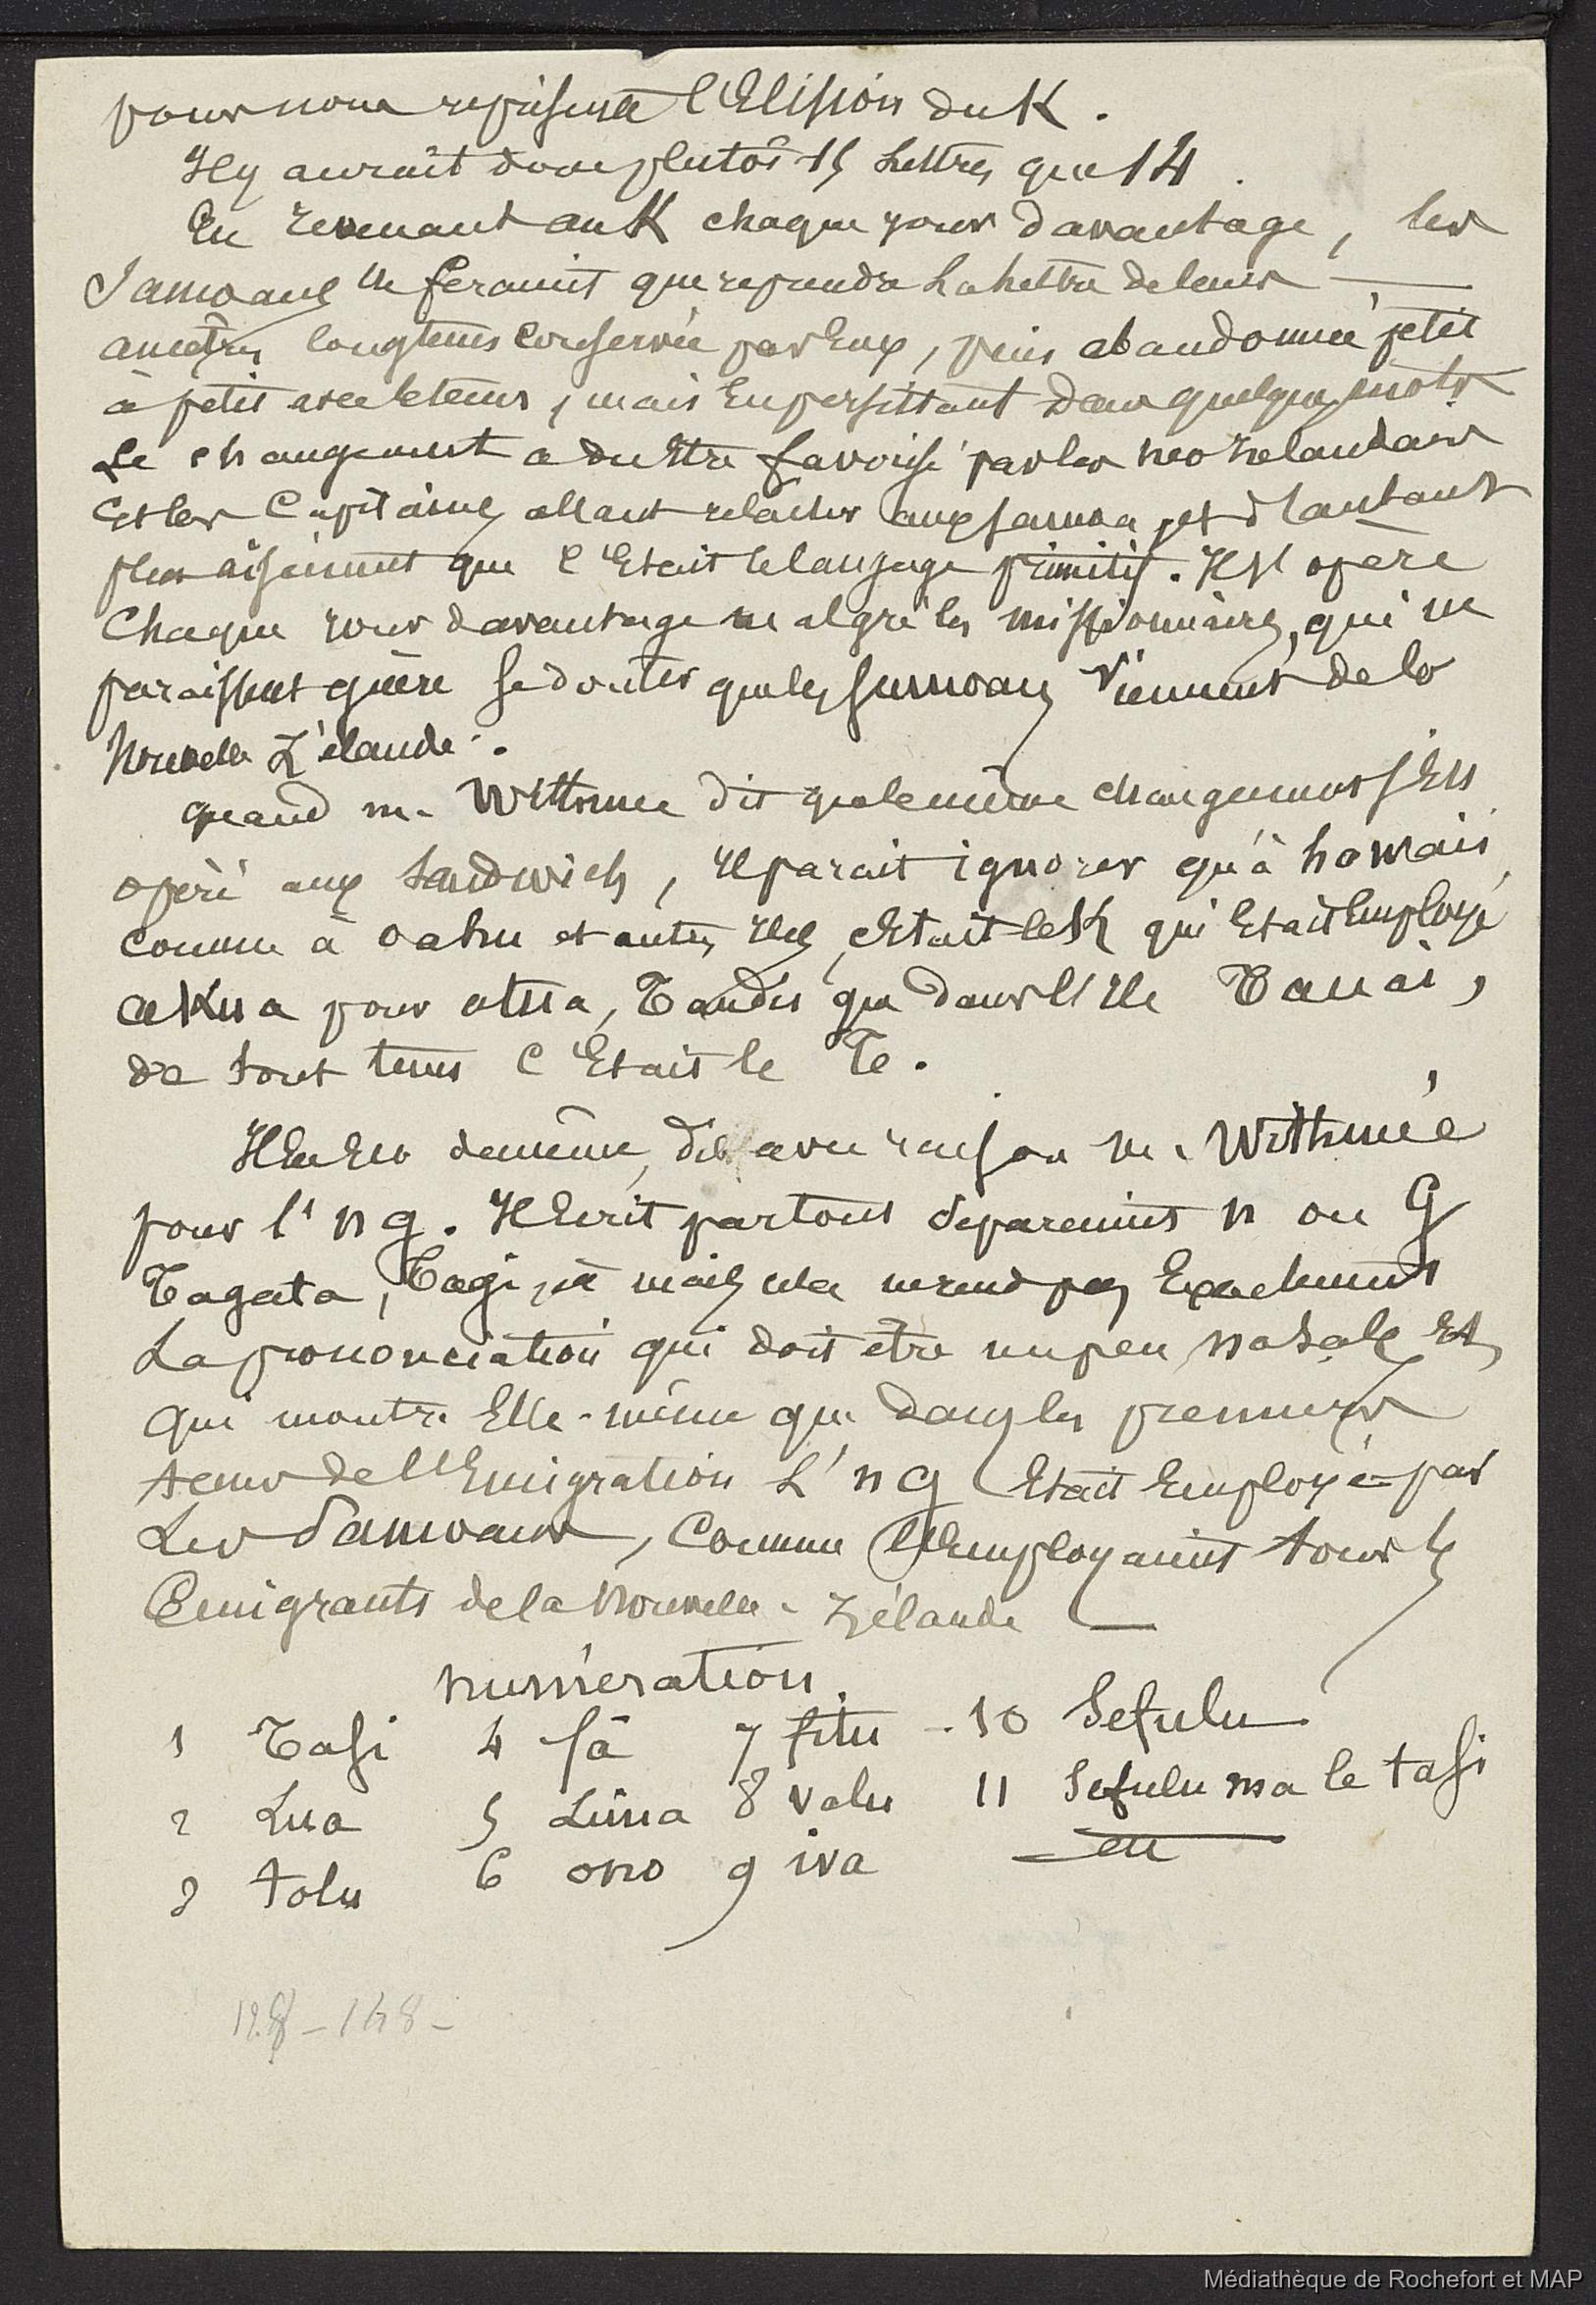 pour nous représente l'Elision du K.
Il y aurait donc plutôt 15 Lettres que 14.
En revenant au K chaque jour davantage, les
Samoans ne feraient que reprendre La Lettre de leurs —
ancêtres longtems conservée par Eux, puis abandonnée petit
à petit avec le tems, mais En persistant dans quelques mots
Le changement a du Etre favorisé par les neo zelandais
Et les Capitaines allant relâcher aux samoa, et d'autant
plus aisément que c'Etait le langage primitif. Il s'opère
Chaque jour davantage malgré les missionnaires, qui ne
paraissent guère se douter que les samoans viennent de la
Nouvelle Zélande.
quand m. Withmee dit que le même changement s'Est
opéré aux Sandwich, il parait ignorer qu'à hawaii
comme à oahu et autres iles, c'Etait le K qui Etait Employé
akua pour atua, Tandis que dans l'ile Tauai,
de tout tems c'Etait le Te.
Il En Est de même, dit avec raison m. Withmée
pour l'ng. Il Ecrit partout séparément n ou G
Tagata, Tagi, mais cela ne rend pas Exactement
La prononciation qui doit être un peu nasale Et
qui montre Elle-même que dans les premiers
tems de l'Emigration L'ng Etait Employé par
Les Samoans, Comme l'Employaient tous les
Emigrants de la Nouvelle-Zélande —
numération.
1 Tasi 4 fâ 7 fitu - 10 Sefulu
2 Lua 5 Lima 8 valu 11 Sefulu ma le tasi
3 tolu 6 ono 9 iva etc
128-148-
Médiathèque de Rochefort et MAP